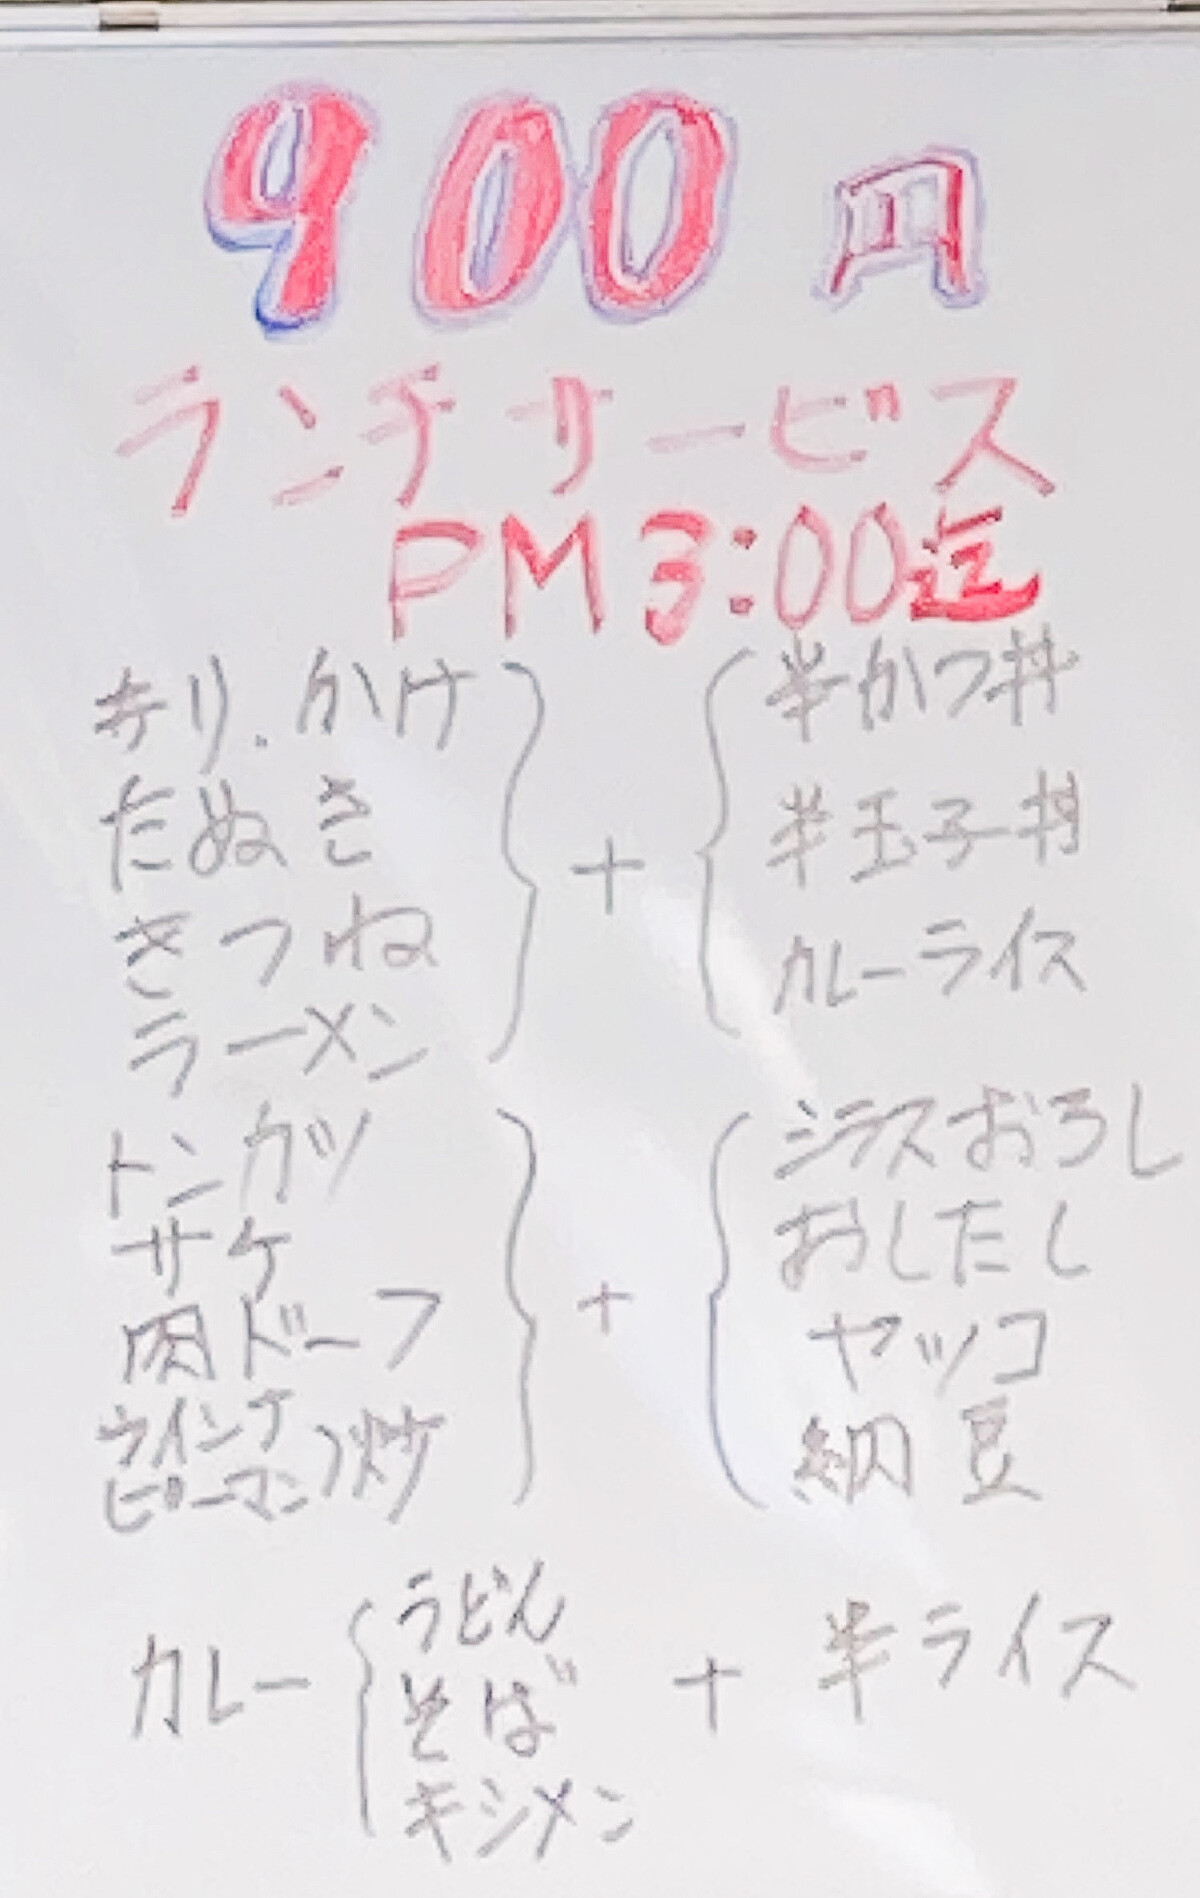 900円
ランチサービス
PM3:00迄
もり.かけ
たぬき
きつね
ラーメン
+
半かつ丼
半玉子丼
カレーライス
トンカツ
サケ
肉ドーフ
ウインナ
ピーマン
炒
+
シラスおろし
おしたし
ヤッコ
納豆
カレー
うどん
そば
キシメン
+
半ライス